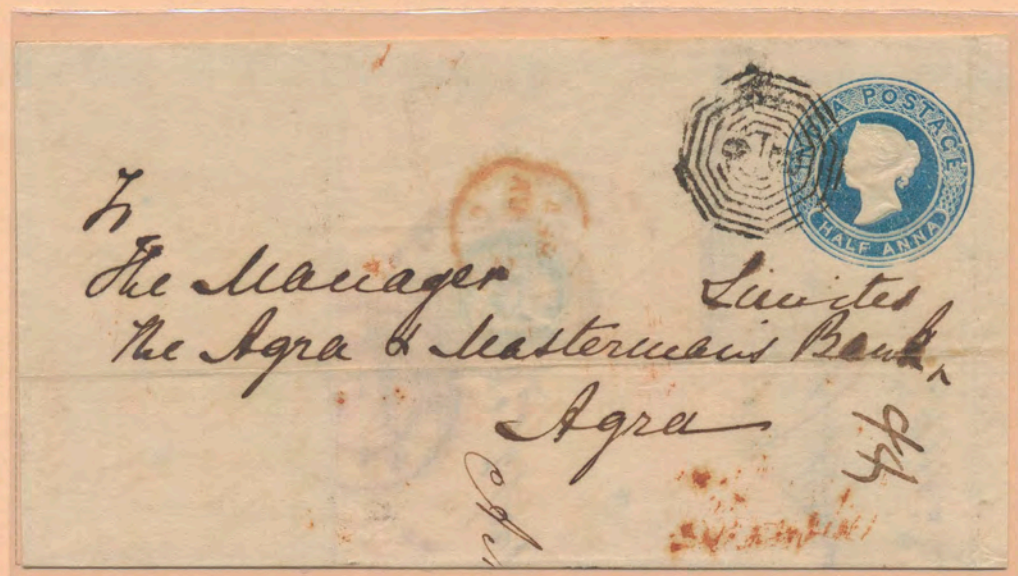 INDIA POSTAGE
HALF ANNA
To
The Manager
Limited
The Agra & Mastermans Bank,
Agra